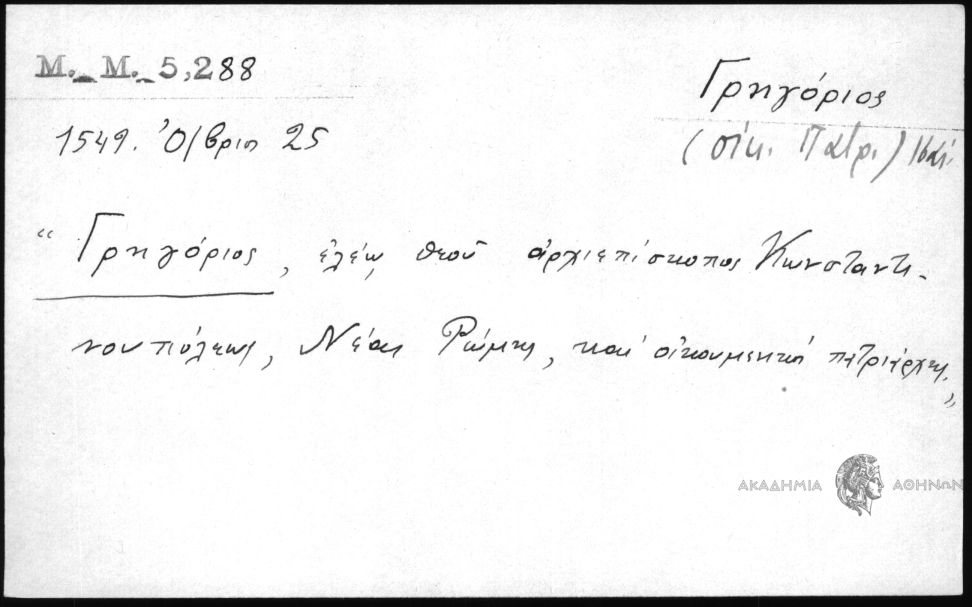 Μ. Μ. 5,288
Γρηγόριος
1549. Ὀ/βριο 25
(οἰκ. Πατρ.)
“ Γρηγόριος, ἐλέῳ θεοῦ ἀρχιεπίσκοπος Κωνσταντι-
νουπόλεως, Νέας Ρώμης, καὶ οἰκουμενικὸς πατριάρχης.”
ΑΚΑΔΗΜΙΑ ΑΘΗΝΩΝ